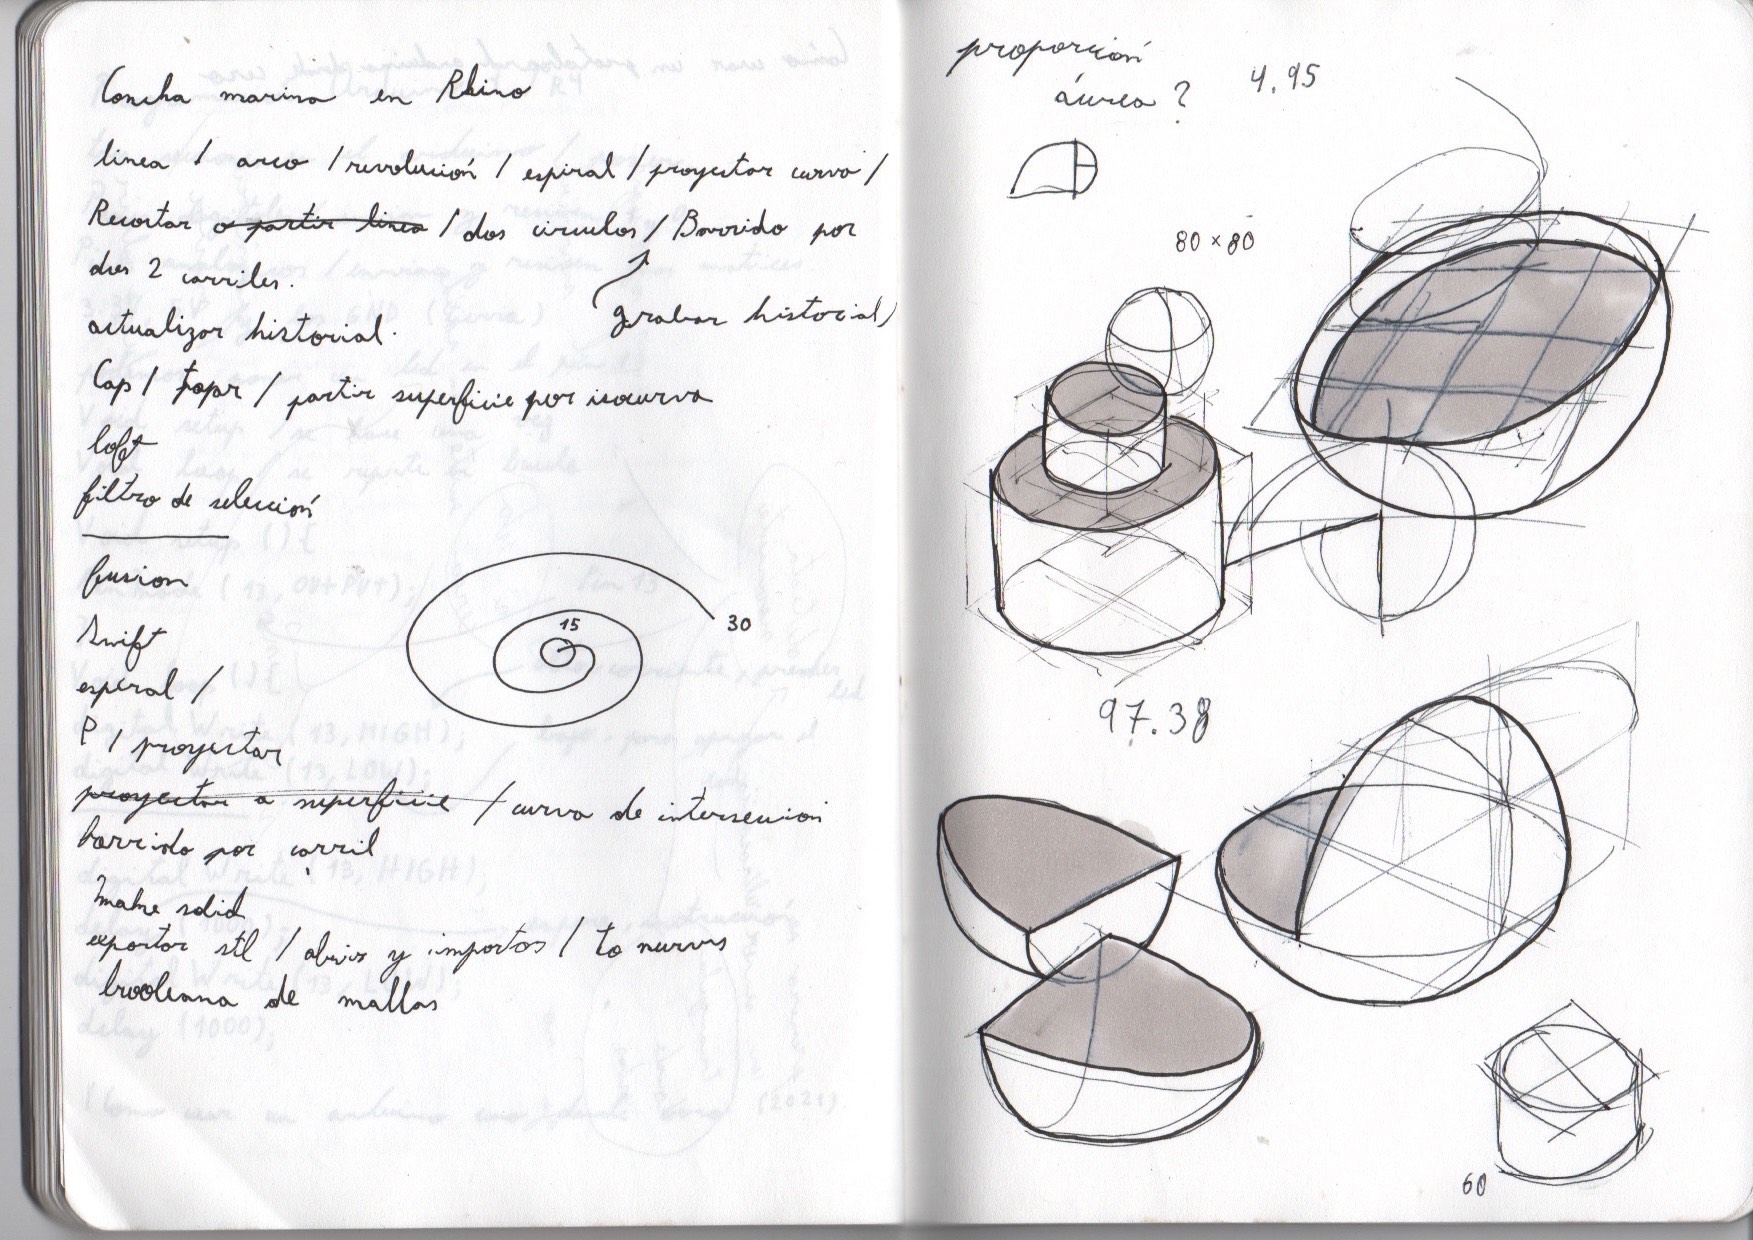 Concha marina en Rhino
linea / arco / revolución / espiral / proyectar curva /
Recortar o partir linea / dos circulos / Barrido por
dos 2 carriles.
grabar historial)
actualizar historial.
Cap / tapar / partir superficie por isocurva
loft
filtro de selección
fusion
Swift
espiral /
P / proyectar
proyectar a superficie / curva de interseccion
barrido por carril
make solid
exportar stl / abris y importas / to nurvs
booleana de mallas
15
30
proporción
áurea ?
4.95
80 x 80
97.38
60